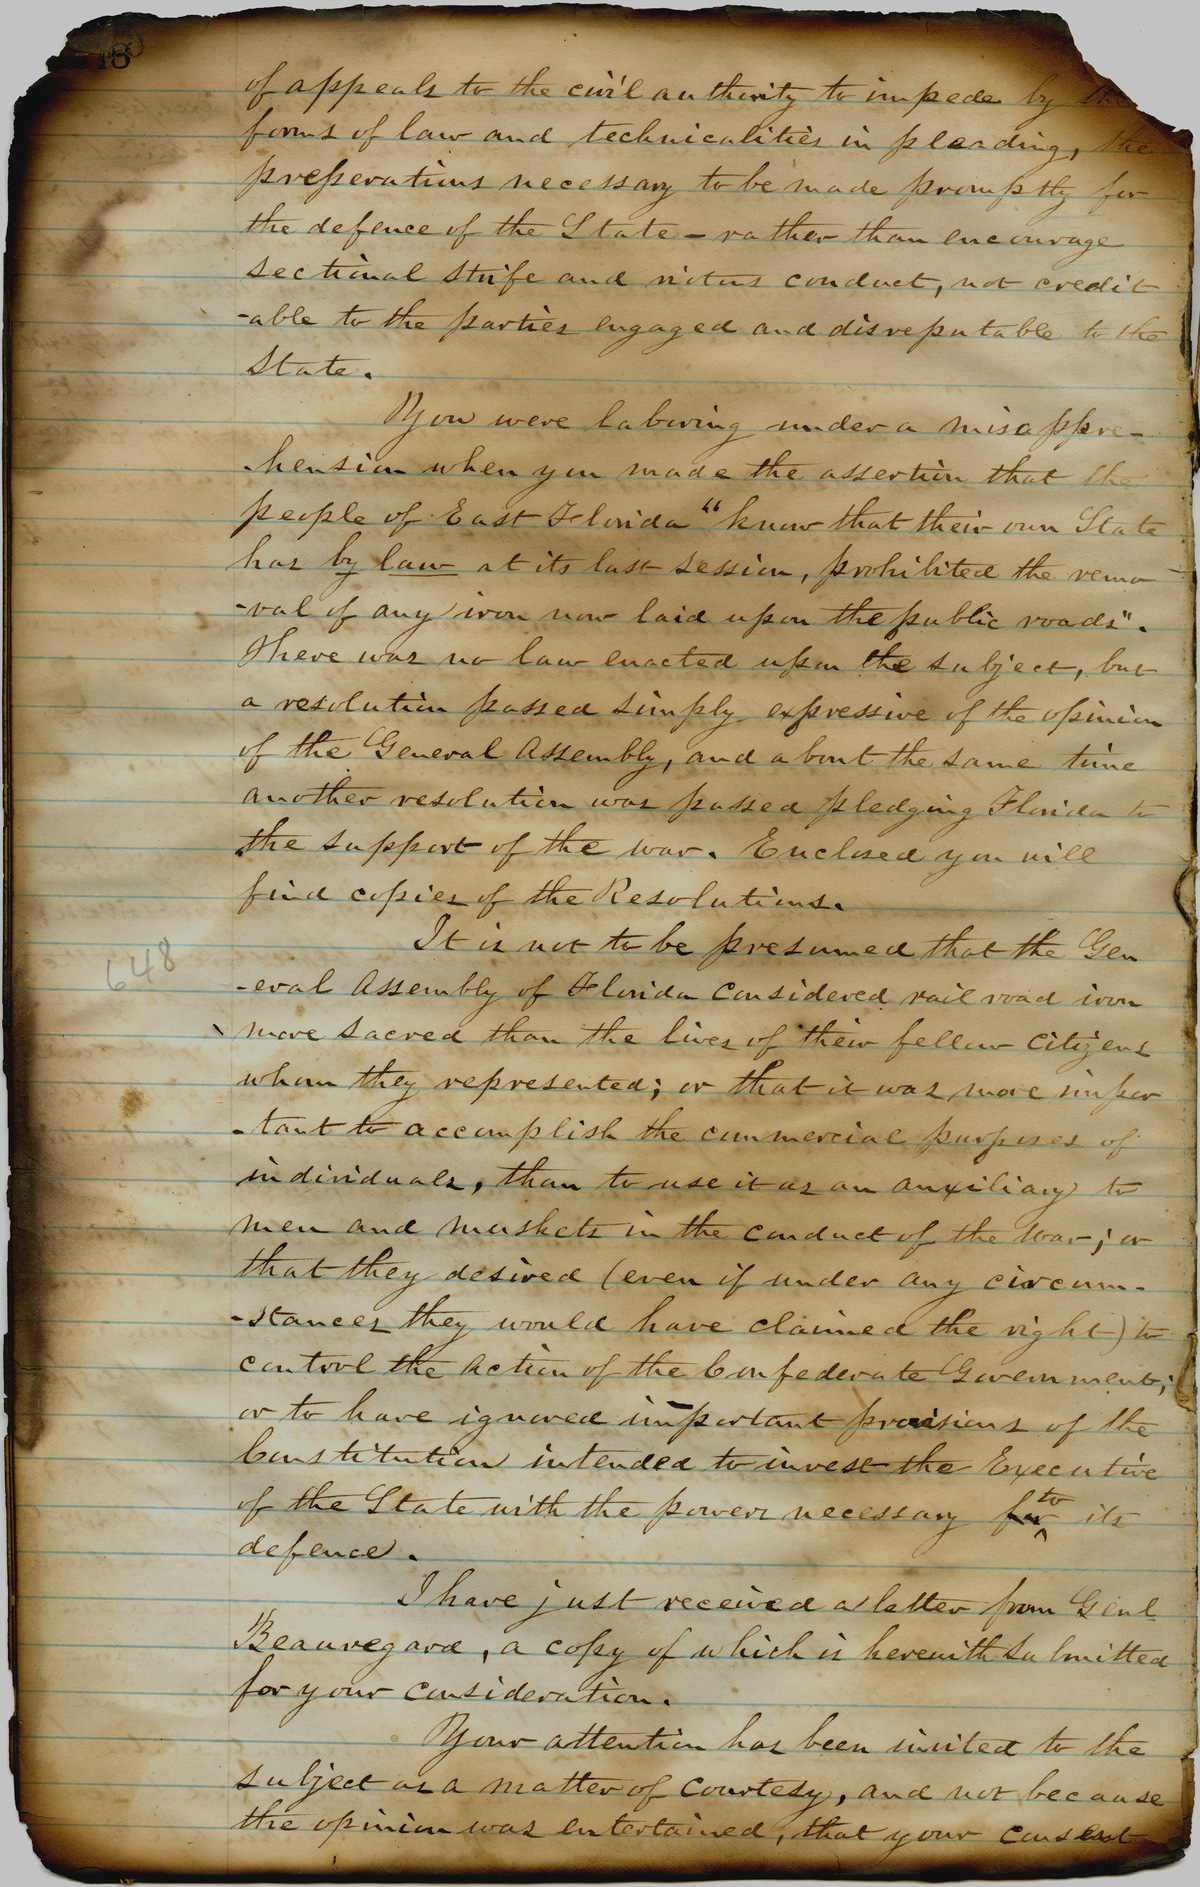 of appeals to the civil authority to impede by the
forms of law and technicalities in pleading, the
preperations necessary to be made promptly for
the defence of the State – rather than encourage
sectional strife and riotous conduct, not credit
-able to the parties engaged and disreputable to the
State.
You were laboring under a misappre-
-hension when you made the assertion that the
people of East Florida "know that their own State
has by law at its last session, prohibited the remo-
-val of any iron now laid upon the public roads".
There was no law enacted upon the subject, but
a resolution passed simply expressive of the opinion
of the General Assembly, and about the same time
another resolution was passed pledging Florida to
the support of the war. Enclosed you will
find copies of the Resolutions.
It is not to be presumed that the Gen
648
-eral Assembly of Florida considered rail road iron
more sacred than the lives of their fellow citizens
whom they represented; or that it was more impor
-tant to accomplish the commercial purposes of
individuals, than to use it as an auxiliary to
men and muskets in the conduct of the war; or
that they desired (even if under any circum-
-stances they would have claimed the right) to
control the action of the Confederate Government;
or to have ignored important provisions of the
Constitution intended to invest the Executive
of the State with the powers necessary for to its
defence.
I have just received a letter from Genl
Beauregard, a copy of which is herewith submitted
for your consideration.
Your attention has been invited to the
subject as a matter of courtesy, and not because
the opinion was entertained, that your consent